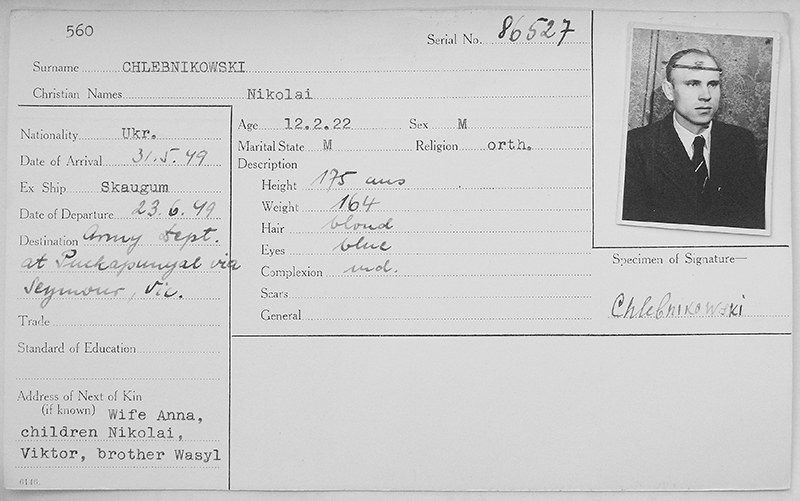 560
Serial No. 86527
Surname CHLEBNIKOWSKI
Christian Names Nikolai
Nationality Ukr.
Date of Arrival 31.5.49
Ex Ship Skaugum
Date of Departure 23.6.49
Destination Army Dept.
at Puckapunyal via
Seymour, Vic.
Trade
Standard of Education
Address of Next of Kin
(if known) Wife Anna,
children Nikolai,
Viktor, brother Wasyl
Age 12.2.22 Sex M
Marital State M Religion orth.
Description
Height 175 cms
Weight 164
Hair blond
Eyes blue
Complexion md.
Scars
General
Specimen of Signature—
Chlebnikowski